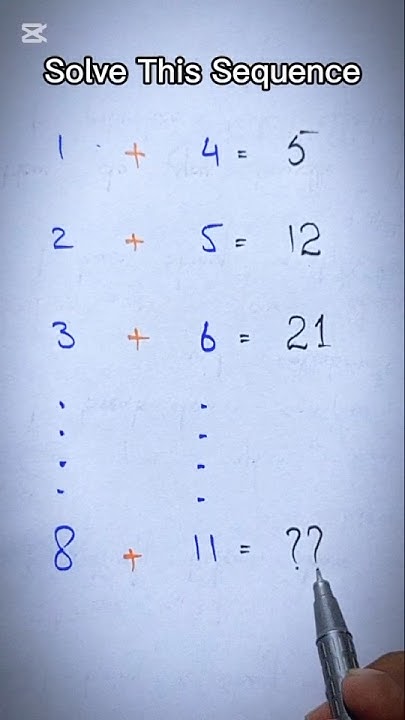 Solve This Sequence
1 + 4 = 5
2 + 5 = 12
3 + 6 = 21
8 + 11 = ??